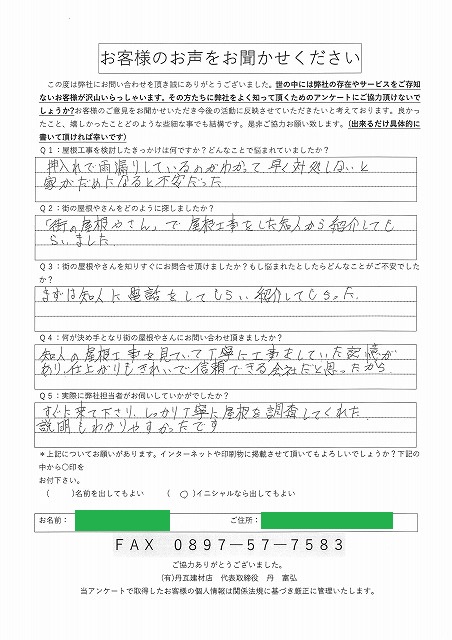 お客様のお声をお聞かせください
この度は弊社にお問い合わせを頂き誠にありがとうございました。世の中には弊社の存在やサービスをご存知
ないお客様が沢山いらっしゃいます。その方たちに弊社をよく知って頂くためのアンケートにご協力頂けないで
しょうか?お客様のご意見をお聞かせいただき今後の活動に反映させていただきたいと考えております。良かっ
たこと、嬉しかったことどのような些細な事でも結構です。是非ご協力お願い致します。(出来るだけ具体的に
書いて頂ければ幸いです)
Q1:屋根工事を検討したきっかけは何ですか?どんなことで悩まれていましたか?
押入れで雨漏りしているのがわかって早く対処しないと
家がだめになると不安だった
Q2:街の屋根やさんをどのように探しましたか?
「街の屋根やさん」で屋根工事をした知人から紹介しても
らいました.
Q3:街の屋根やさんを知りすぐにお問合せ頂けましたか?もし悩まれたとしたらどんなことがご不安でした
か?
まずは知人に電話をしてもらい紹介してもらった.
Q4:何が決め手となり街の屋根やさんにお問い合わせ頂きましたか?
知人の屋根工事を見ていて丁寧に工事をしていた記憶が
あり、仕上がりもきれいで信頼できる会社だと思ったから
Q5:実際に弊社担当者がお伺いしていかがでしたか?
すぐに来て下さり、しっかり丁寧に屋根を調査してくれた.
説明もわかりやすかったです
*上記についてお願いがあります。インターネットや印刷物に掲載させて頂いてもよろしいでしょうか?下記の
中から〇印を
お付下さい。
( )名前を出してもよい ( ○ )イニシャルなら出してもよい
お名前: ご住所:
FAX 0897-57-7583
ご協力ありがとうございました。
(有)丹瓦建材店 代表取締役 丹 富弘
当アンケートで取得したお客様の個人情報は関係法規に基づき厳正に管理いたします。